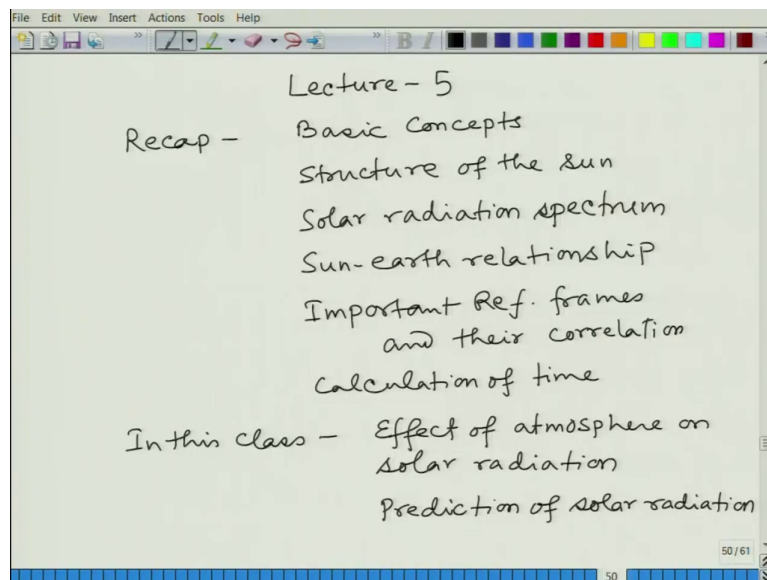 File Edit View Insert Actions Tools Help
B I
Lecture - 5
Recap - Basic Concepts
Structure of the sun
Solar radiation spectrum
Sun-earth relationship
Important Ref. frames
and their correlation
Calculation of time
In this class - Effect of atmosphere on
solar radiation
Prediction of solar radiation
50/61
50